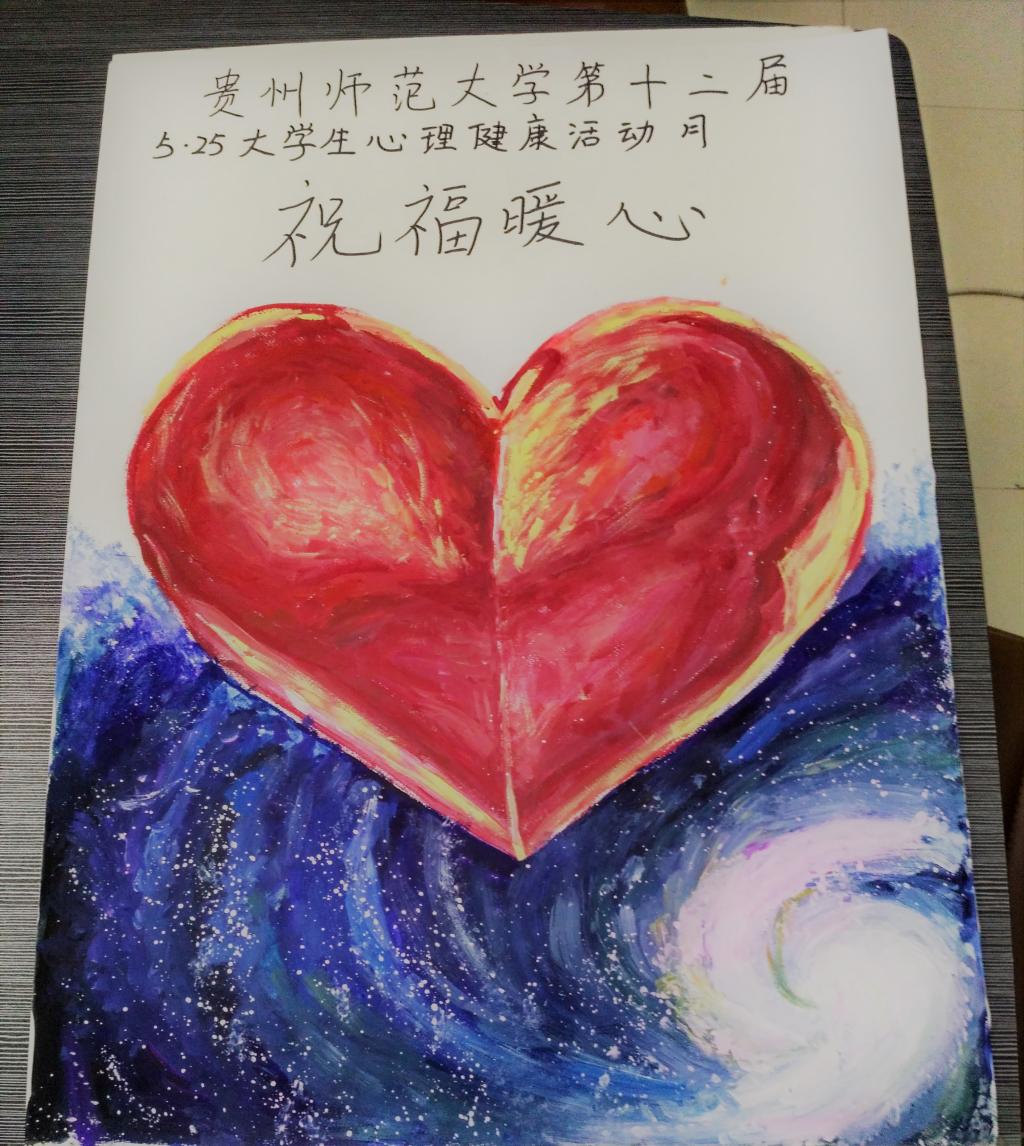 贵州师范大学第十二届
5·25大学生心理健康活动月
祝福暖心